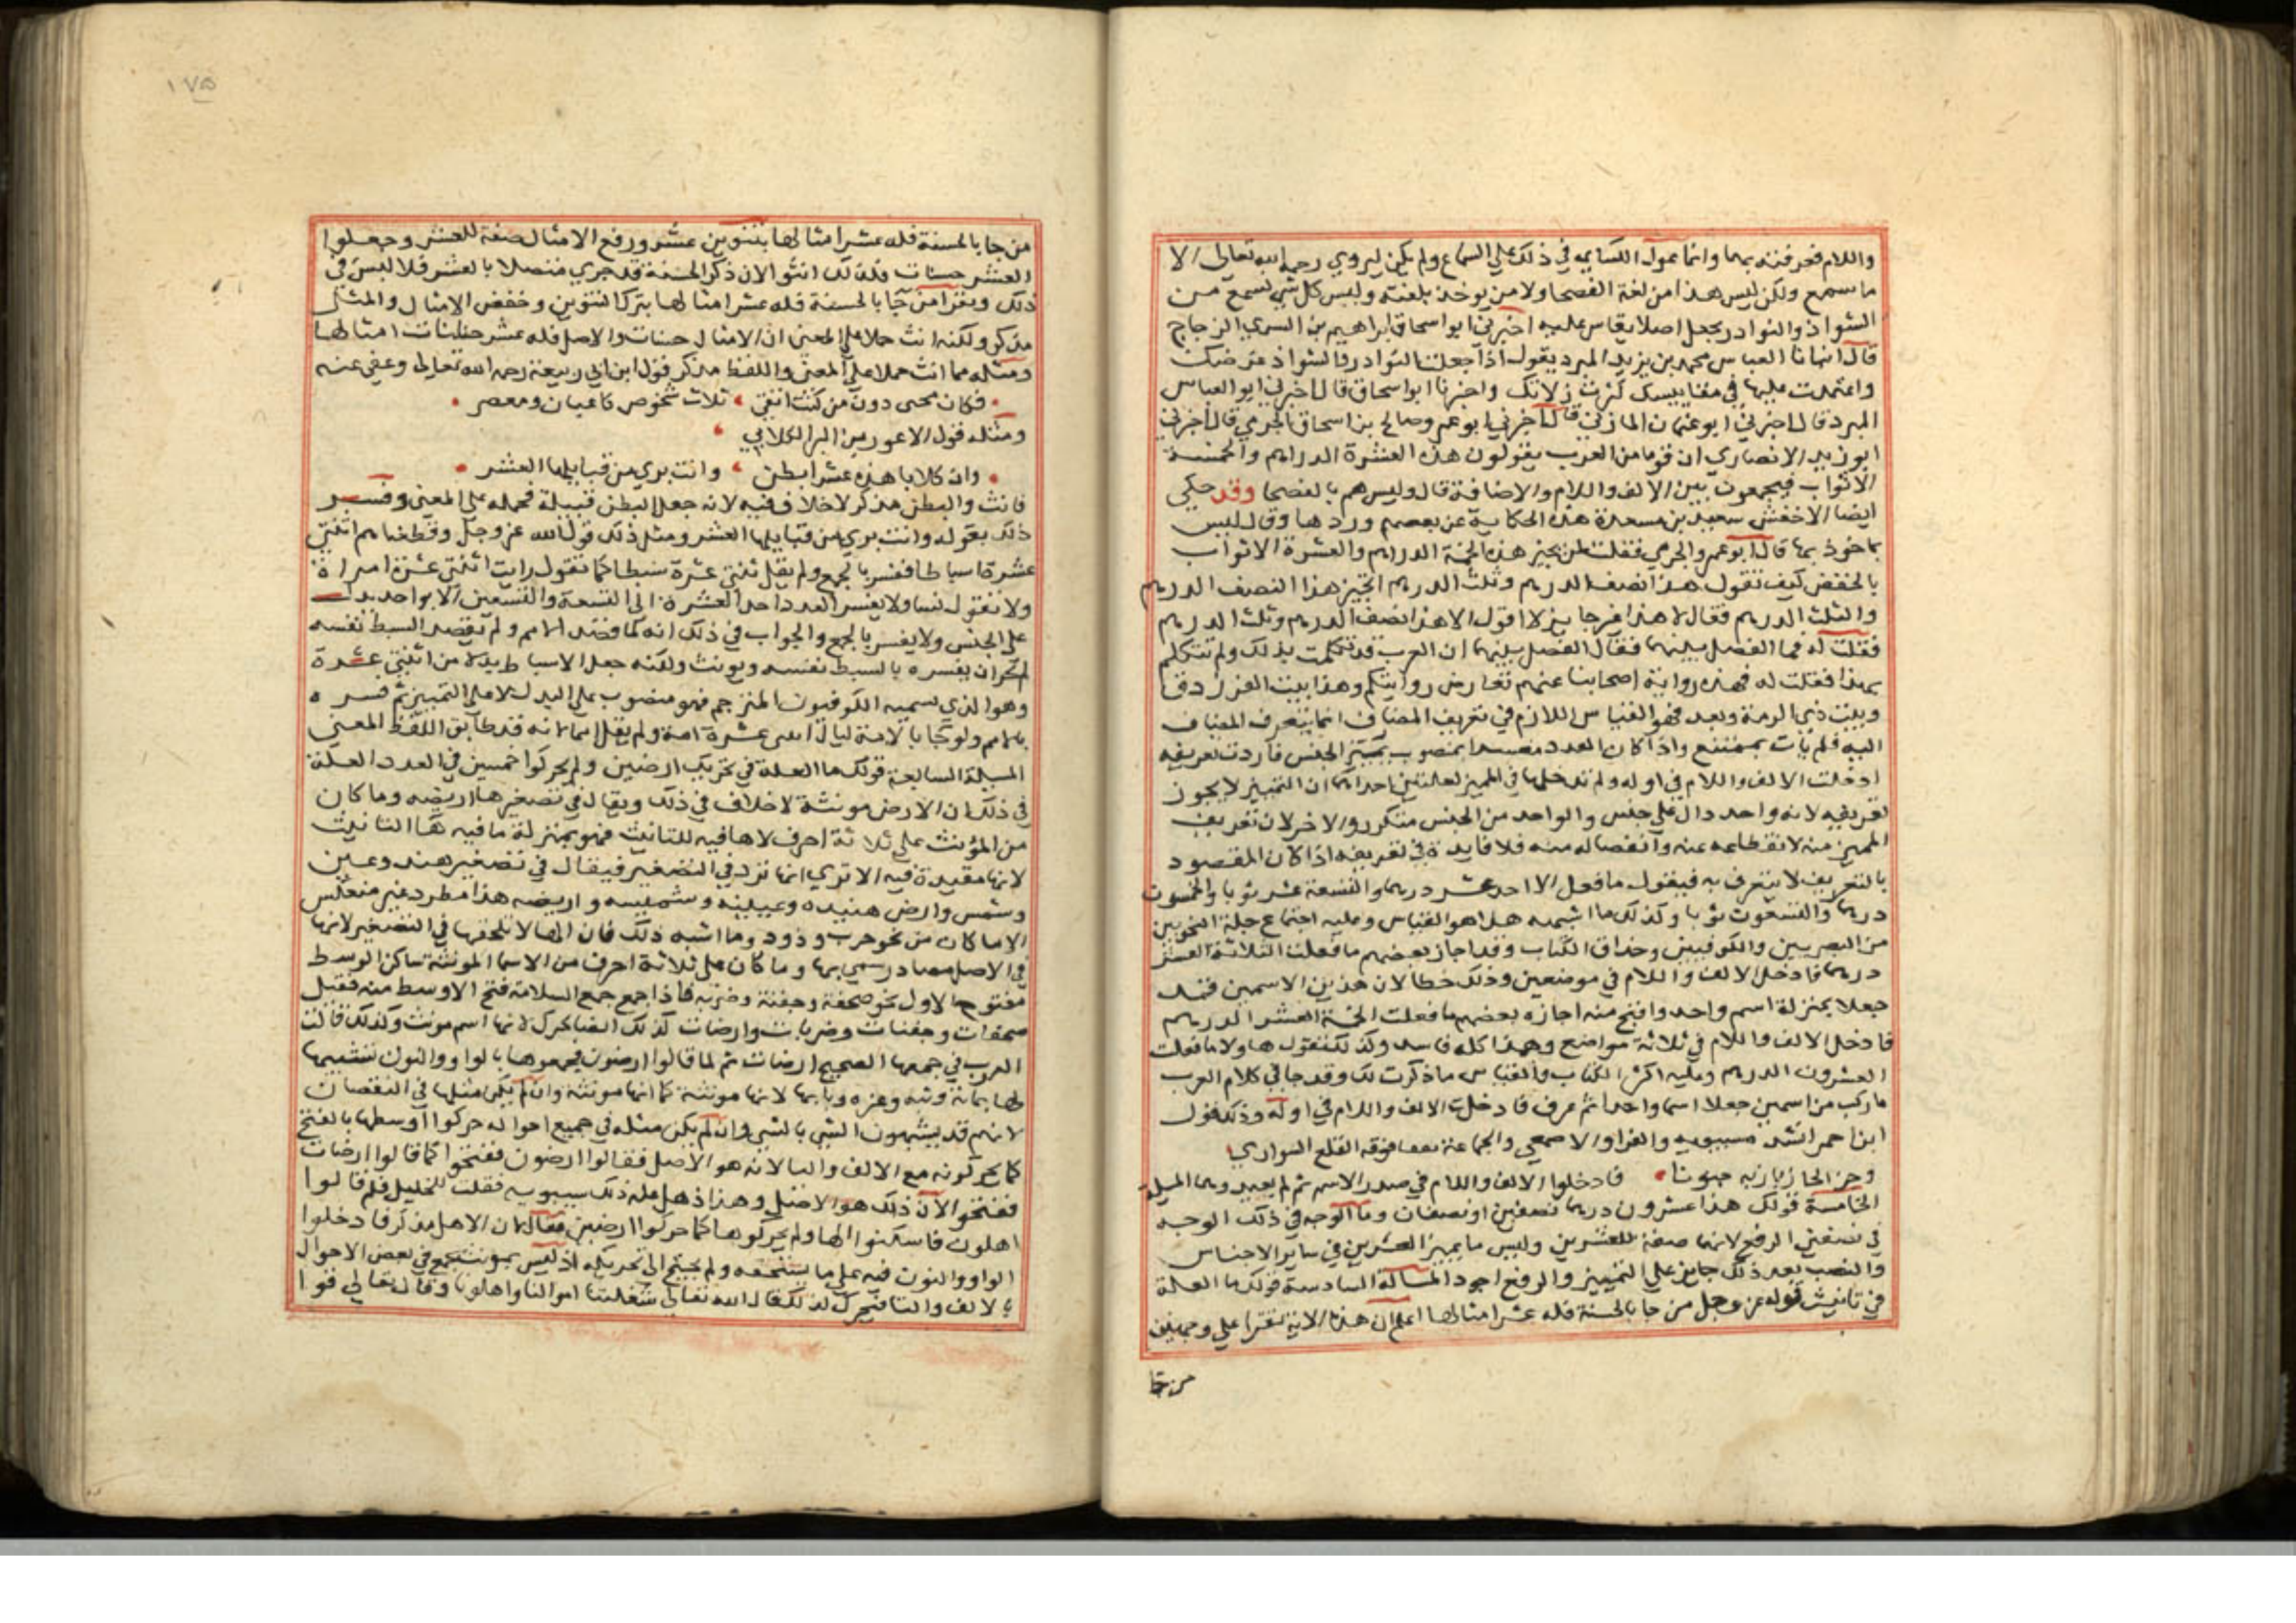 واللام فعرفته بهما وانما عول الكسايي في ذلك علي السماع ولم يكن ليروي رحمه الله تعالي الا
ما سمع ولكن ليس هذا من لغة الفصحا ولا من يوخذ بلغته وليس كل شي يسمع من
الشواذ والنوادر يجعل اصلا يقاس عليه اخبرني ابو اسحاق ابراهيم بن السري الزجاج
قال انبانا العباس محمد بن يزيد المبرد يقول اذا جعلت النوادر والشواذ غرضك
واعتمدت عليها في مقاييسك كثرت زلاتك واخبرنا ابو اسحاق قال اخبرني ابو العباس
المبرد قال اخبرني ابو عثمان المازني قال اخبرني ابو عمر وصالح بن اسحاق الجرمي قال اخبرني
ابو زيد الانصاري ان قوما من العرب يقولون هذه العشرة الدراهم والخمسة
الاثواب فيجمعون بين الالف واللام والاضافة قال وليس هم بالفصحا وقد حكي
ايضا الاخفش سعيد بن مسعدة هذه الحكاية عن بعضهم وردها وقال ليس
بماخوذ بها قال ابو عمر والجرمي فقلت لمن يجيز هذه الخمسة الدراهم والعشرة الاثواب
بالخفض كيف تقول هذا نصف الدرهم وثلث الدرهم اتجيز هذا النصف الدرهم
والثلث الدرهم فقال لا هذا غير جايز لا اقول الا هذا نصف الدرهم وثلث الدرهم
فقلت له فما الفصل بينهما فقال الفصل بينهما ان العرب قد تكلمت بذلك ولم تتكلم
بهذا فقلت له فهذه رواية اصحابنا عنهم تعارض روايتكم وهذا بيت الفرزدق
وبيت ذي الرمة وبعد فهو القياس اللازم في تعريف المضاف انما يتعرف المضاف
اليه فلم يات بممتنع واذا كان العدد مفسرا بمنصوب يميز الجنس فاردت تعريفه
ادخلت الالف واللام في اوله ولم تدخلها في المميز لعلتين احداهما ان التمييز لا يجوز
تعريفه لانه واحد دال علي جنس والواحد من الجنس متكرر والاخر لان تعريف
المميز منه لانقطاعه عنه وانفصاله منه فلا فايدة في تعريفه اذا كان المقصود
بالتعريف لا يتعرف به فيقول ما فعل الاحد عشر درهما والتسعة عشر ثوبا والخمسون
درهما والتسعون ثوبا وكذلك ما اشبهه هذا هو القياس وعليه اجتماع جلة النحويين
من البصريين والكوفيين وحذاق الكتاب وقد اجاز بعضهم ما فعلت الثلاثة العشر
درهما فادخل الالف واللام في موضعين وذلك خطا لان هذين الاسمين قد
جعلا بمنزلة اسم واحد واقبح منه اجازه بعضهم ما فعلت الخمسة العشر الدرهم
فادخل الالف واللام في ثلاثة مواضع وهذا كله فاسد وكذلك تقول هاولا ما فعلت
العشرون الدرهم وعليه اكثر الكتاب والقياس ما ذكرت لك وقد جا في كلام العرب
ما ركب من اسمين جعلا اسما واحدا ثم عرف فادخلت الالف واللام في اوله وذلك قول
ابن احمر انشد سيبويه والفرا والاصمعي والجماعة تفقا فوقه القلع السواري
وجن الخازباز به جنونا فادخلوا الالف واللام في صدر الاسم ثم لم يعيدوهما المسيلة
الخامسة قولك هذا عشرون درهما نصفين او نصفان وما الوجه في ذلك الوجه
في نصفين الرفع لانها صفة للعشرين وليس ما يميز العشرين في ساير الاجناس
والنصب بعد ذلك جايز علي التمييز والرفع اجود المسالة السادسة قولك ما العلة
في تانيث قوله عز وجل من جا بالحسنة فله عشر امثالها اعلم ان هذه الاية تقرا علي وجهين
من جا
١٧٥
من جا بالحسنة فله عشر امثالها بتنوين عشر ورفع الامثال صفة للعشر وجعلوا
العشر حسنات فلذلك انثوا لان ذكر الحسنة قد جري متصلا بالعشر فلا لبس في
ذلك ويقرا من جا بالحسنة فله عشر امثالها بترك التنوين وخفض الامثال والمثل
مذكر ولكنه انث حملا علي المعني ان الامثال حسنات والاصل فله عشر حسنات امثالها
ومثله مما انث حملا علي المعني واللفظ مذكر قول ابن ابي ربيعة رحمه الله تعالي وعفي عنه
فكان مجنى دون من كنت اتقي ثلاث شخوص كاعبان ومعصر
ومثله قول الاعور بن البرا الكلابي
وان كلابا هذه عشر ابطن وانت بري من قبايلها العشر
فانث والبطن مذكر لا خلاف فيه لانه جعل البطن قبيلة فحمله علي المعني وفسر
ذلك بقوله وانت بري من قبايلها العشر ومثل ذلك قول الله عز وجل وقطعناهم اثنتي
عشرة اسباطا ففسر بالجمع ولم يقل ثنتي عشرة سبطا كما تقول رايت اثنتي عشرة امراة
ولا تقول نسا ولا يفسر العدد احد العشرة الي التسعة والتسعين الا بواحد يدل
علي الجنس ولا يفسر بالجمع والجواب في ذلك انه لما قصد الامم ولم يقصد السبط نفسه
لم يجز ان يفسره بالسبط نفسه ويونث ولكنه جعل الاسباط بدلا من اثنتي عشرة
وهو الذي يسميه الكوفيون المترجم فهو منصوب علي البدل لا علي التمييز ثم فسره
بالامم ولو جا بالامة ليال اثنتي عشرة امة ولم يقل امما لانه قد طابق اللفظ المعني
المسيلة السابعة قولك ما العلة في تحريك ارضين ولم يحركوا خمسين في العدد العلة
في ذلك ان الارض مونثة لا خلاف في ذلك ويقال في تصغيرها اريضه وما كان
من المؤنث علي ثلاثة احرف لا ها فيه للتانيث فهو بمنزلة ما فيه ها التانيث
لانها مقيدة فيه الا تري انها ترد في التصغير فيقال في تصغير هند وعين
وشمس وارض هنيده وعيينه وشميسه واريضه هذا مطرد غير منعكس
الا ما كان من نحو حرب وذود وما اشبه ذلك فان الها لا تلحقها في التصغير لانها
في الاصل مصادر سمي بها وما كان علي ثلاثة احرف من الاسما المونثة ساكن الوسط
مفتوح الاول نحو صحفة وجفنة وضربه فاذا جمع جمع السلامة فتح الاوسط منه فقيل
صحفات وجفنات وضربات وارضات كذلك ايضا يحرك لانها اسم مونث وكذلك قالت
العرب في جمعها الصحيح ارضات ثم لما قالوا ارضون فجمعوها بالواو والنون تشبيها
لها بمائة وثبه وعزه وبابها لانها مونثة كما انها مونثة وان لم يكن مثلها في النقصان
لانهم قد يشبهون الشي بالشي وان لم يكن مثله في جميع احواله حركوا اوسطها بالفتح
كما يحركونه مع الالف والتا لانه هو الاصل فقالوا ارضون ففتحوا كما قالوا ارضات
ففتحوا لان ذلك هو الاصل وهذا ذهل عله ذلك سيبويه فقلت للخليل فلم قالوا
اهلون فاسكنوا الها ولم يحركوها كما حركوا ارضين فقال لان الاهل مذكر فادخلوا
الواو والنون فيه علي ما يستحقه ولم يحتج الي تحريكه اذ ليس بمونث يجمع في بعض الاحوال
بالالف والتا فيحرك لذلك قال الله تعالي شغلتنا اموالنا واهلونا وقال تعالي قوا